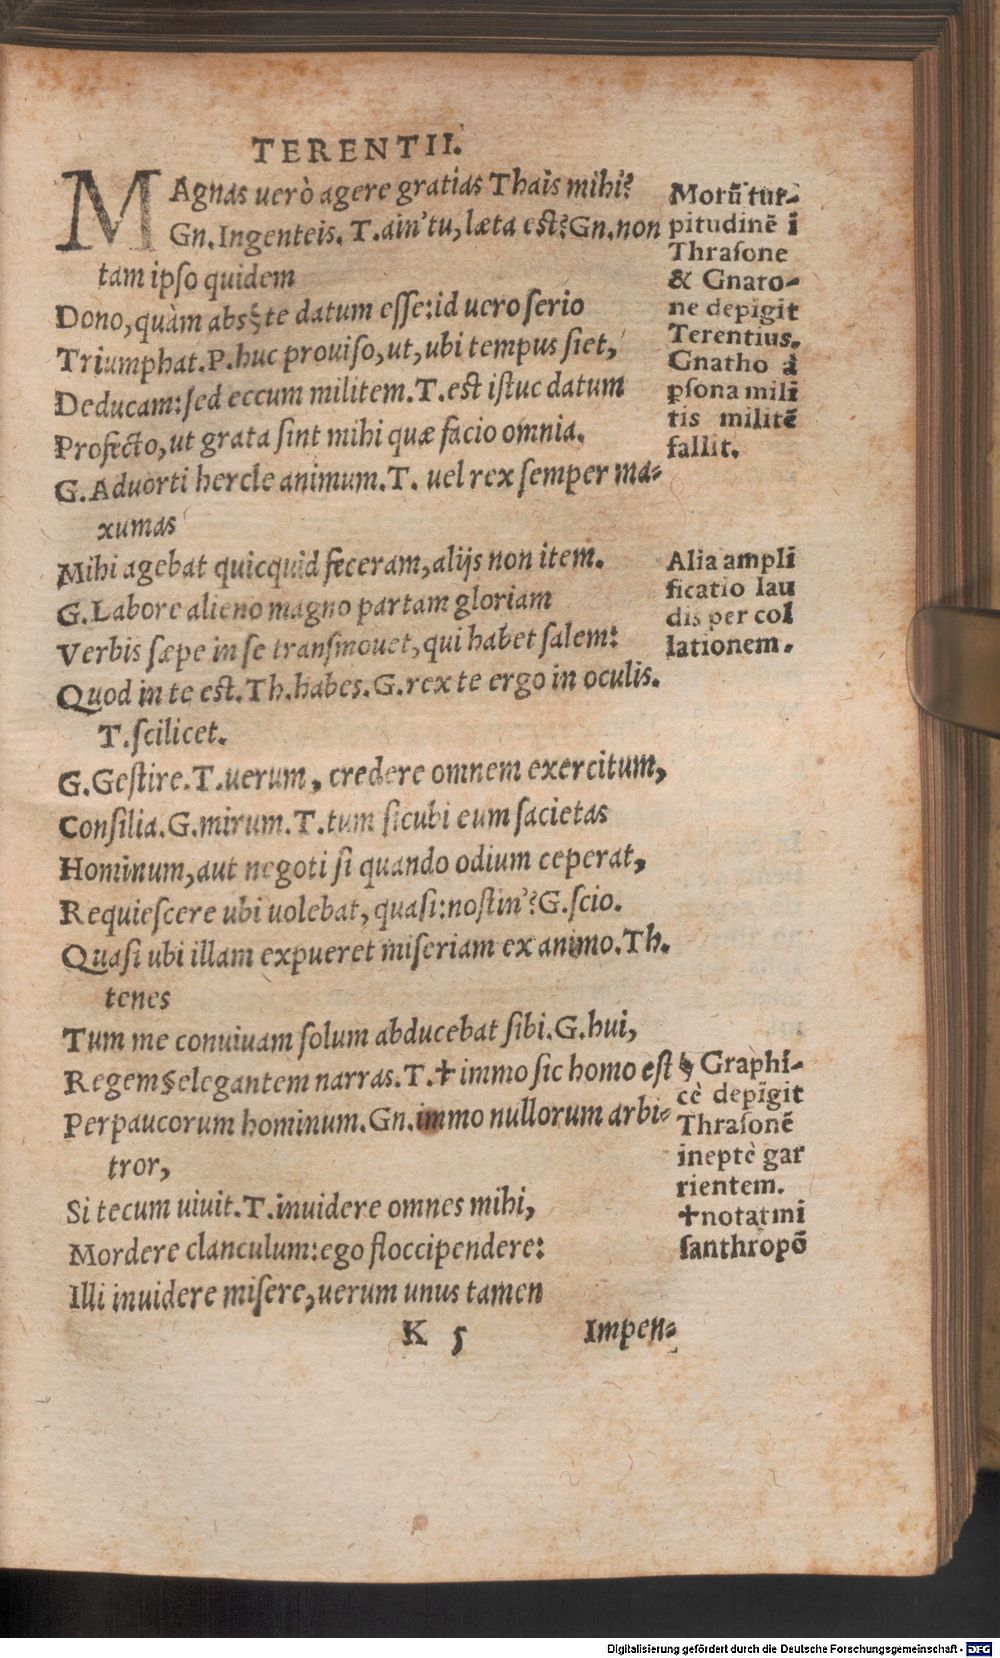 TERENTII.
MAgnas uerò agere gratias Thais mihi?
Gn. Ingenteis. T. ain' tu, læta est? Gn. non
tam ipso quidem
Dono, quàm abs te datum esse: id uero serio
Triumphat. P. huc prouiso, ut, ubi tempus siet,
Deducam: sed eccum militem. T. est istuc datum
Profecto, ut grata sint mihi quæ facio omnia.
G. Aduorti hercle animum. T. uel rex semper ma-
xumas
Mihi agebat quicquid feceram, alijs non item.
G. Labore alieno magno partam gloriam
Verbis sæpe in se transmouet, qui habet salem:
Quod in te est. Th. habes. G. rex te ergo in oculis.
T. scilicet.
G. Gestire. T. uerum, credere omnem exercitum,
Consilia. G. mirum. T. tum sicubi eum sacietas
Hominum, aut negoti si quando odium ceperat,
Requiescere ubi uolebat, quasi: nostin'? G. scio.
Quasi ubi illam expueret miseriam ex animo. Th.
tenes
Tum me conuiuam solum abducebat sibi. G. hui,
Regem elegantem narras. T. ✝ immo sic homo est
Perpaucorum hominum. Gn. immo nullorum arbi-
tror,
Si tecum uiuit. T. inuidere omnes mihi,
Mordere clanculum: ego floccipendere:
Illi inuidere misere, uerum unus tamen
K 5 Impen-
Morũ tur-
pitudinẽ ĩ
Thrasone
& Gnato-
ne depĩgit
Terentius.
Gnatho à
psona mili
tis militẽ
fallit.
Alia ampli
ficatio lau
dis per col
lationem.
Graphi-
cè depĩgit
Thrasonẽ
ineptè gar
rientem.
✝ notat mi
santhropõ
Digitalisierung gefördert durch die Deutsche Forschungsgemeinschaft - DFG